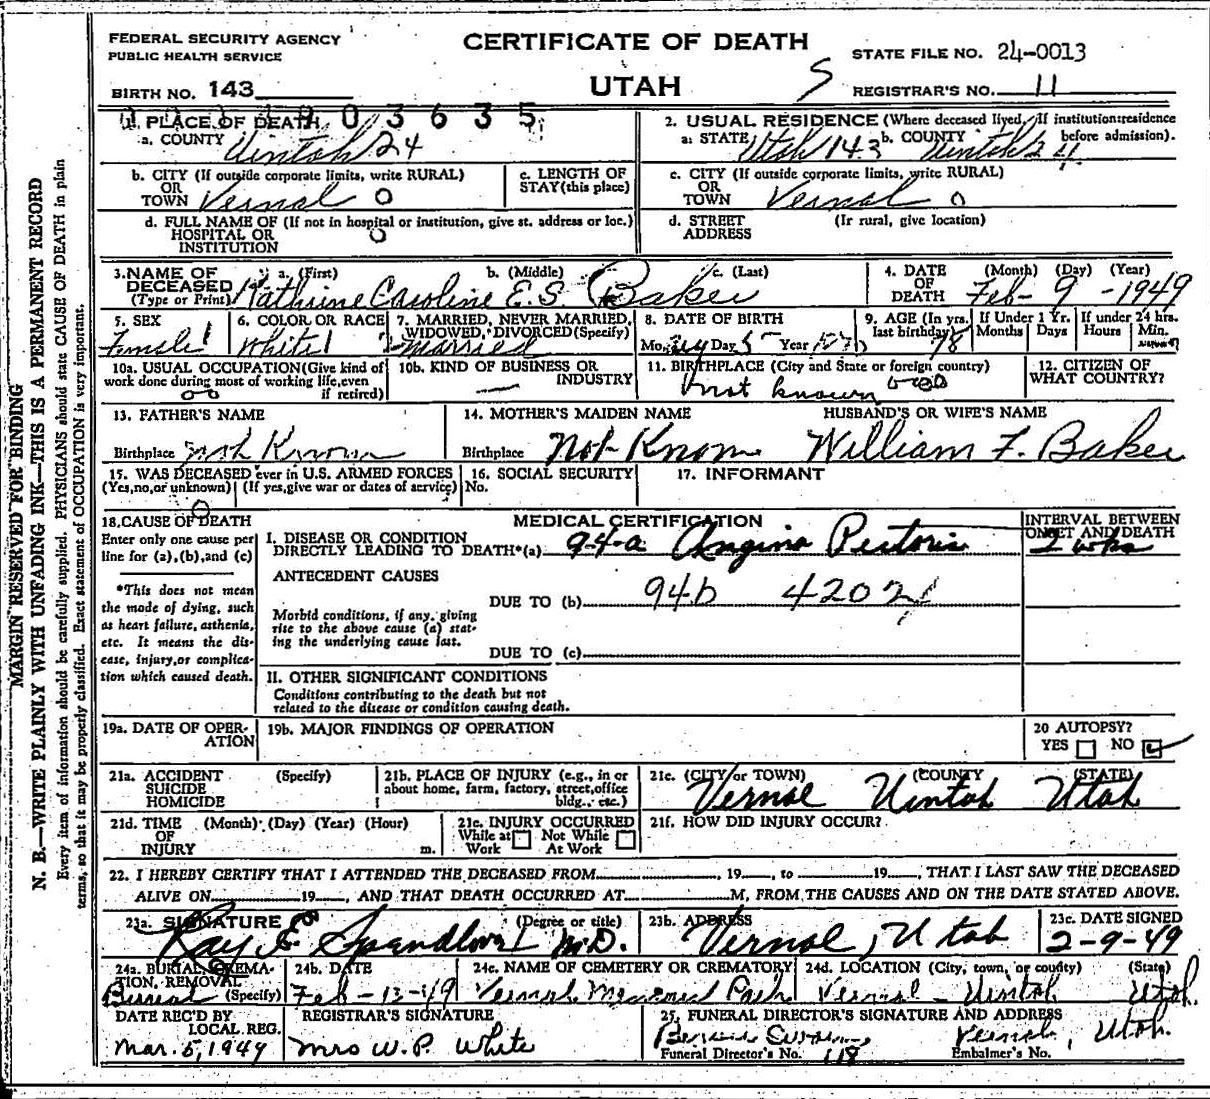 FEDERAL SECURITY AGENCY
PUBLIC HEALTH SERVICE
CERTIFICATE OF DEATH
UTAH
STATE FILE NO. 24-0013
BIRTH NO. 143
S
REGISTRAR'S NO. 11
03635
1. PLACE OF DEATH
a. COUNTY Uintah 24
2. USUAL RESIDENCE (Where deceased lived, If institution: residence before admission).
a. STATE Utah 143 b. COUNTY Uintah 24
b. CITY (If outside corporate limits, write RURAL)
OR
TOWN Vernal 0
c. LENGTH OF
STAY (this place)
c. CITY (If outside corporate limits, write RURAL)
OR
TOWN Vernal 0
d. FULL NAME OF (If not in hospital or institution, give st. address or loc.)
HOSPITAL OR
INSTITUTION
0
d. STREET
ADDRESS
(If rural, give location)
3. NAME OF
DECEASED
(Type or Print)
a. (First) b. (Middle) c. (Last)
Kathrine Caroline E. S. Baker
4. DATE
OF
DEATH
(Month) (Day) (Year)
Feb - 9 - 1949
5. SEX
Female 1
6. COLOR OR RACE
White 1
7. MARRIED, NEVER MARRIED,
WIDOWED, DIVORCED (Specify)
Married
8. DATE OF BIRTH
Mo. Day 5 Year
9. AGE (In yrs.
last birthday)
78
If Under 1 Yr.
Months Days
If under 24 hrs.
Hours Min.
10a. USUAL OCCUPATION (Give kind of
work done during most of working life, even
if retired)
00
10b. KIND OF BUSINESS OR
INDUSTRY
—
11. BIRTHPLACE (City and State or foreign country)
not known
12. CITIZEN OF
WHAT COUNTRY?
13. FATHER'S NAME
Birthplace Not Known
14. MOTHER'S MAIDEN NAME
Birthplace Not Known
HUSBAND'S OR WIFE'S NAME
William F. Baker
15. WAS DECEASED ever in U.S. ARMED FORCES
(Yes, no, or unknown) (If yes, give war or dates of service)
16. SOCIAL SECURITY
No.
17. INFORMANT
18. CAUSE OF DEATH
Enter only one cause per
line for (a), (b), and (c)
*This does not mean
the mode of dying, such
as heart failure, asthenia,
etc. It means the dis-
ease, injury, or complica-
tion which caused death.
MEDICAL CERTIFICATION
I. DISEASE OR CONDITION
DIRECTLY LEADING TO DEATH*(a) 94-a Angina Pectoris
INTERVAL BETWEEN
ONSET AND DEATH
2 wks
ANTECEDENT CAUSES
DUE TO (b) 94b 4202
Morbid conditions, if any, giving
rise to the above cause (a) stat-
ing the underlying cause last.
DUE TO (c)
II. OTHER SIGNIFICANT CONDITIONS
Conditions contributing to the death but not
related to the disease or condition causing death.
19a. DATE OF OPER-
ATION
19b. MAJOR FINDINGS OF OPERATION
20 AUTOPSY?
YES NO
21a. ACCIDENT (Specify)
SUICIDE
HOMICIDE
21b. PLACE OF INJURY (e.g., in or
about home, farm, factory, street, office
bldg., etc.)
21c. (CITY or TOWN) (COUNTY) (STATE)
Vernal Uintah Utah
21d. TIME (Month) (Day) (Year) (Hour)
OF
INJURY m.
21e. INJURY OCCURRED
While at Work Not While At Work
21f. HOW DID INJURY OCCUR?
22. I HEREBY CERTIFY THAT I ATTENDED THE DECEASED FROM , 19 , to 19 , THAT I LAST SAW THE DECEASED
ALIVE ON 19 , AND THAT DEATH OCCURRED AT M, FROM THE CAUSES AND ON THE DATE STATED ABOVE.
23a. SIGNATURE (Degree or title)
Ray E Spendlove M.D.
23b. ADDRESS
Vernal, Utah
23c. DATE SIGNED
2-9-49
24a. BURIAL, CREMA-
TION, REMOVAL
Burial (Specify)
24b. DATE
Feb - 12 - 49
24c. NAME OF CEMETERY OR CREMATORY
Vernal Memorial Park
24d. LOCATION (City, town, or county) (State)
Vernal - Uintah Utah
DATE REC'D BY
LOCAL REG.
Mar. 5, 1949
REGISTRAR'S SIGNATURE
Mrs W. P. White
25. FUNERAL DIRECTOR'S SIGNATURE AND ADDRESS
Vernal, Utah.
Funeral Director's No. 118 Embalmer's No.
MARGIN RESERVED FOR BINDING
N. B.—WRITE PLAINLY WITH UNFADING INK—THIS IS A PERMANENT RECORD
Every item of information should be carefully supplied. PHYSICIANS should state CAUSE OF DEATH in plain
terms, so that it may be properly classified. Exact statement of OCCUPATION is very important.